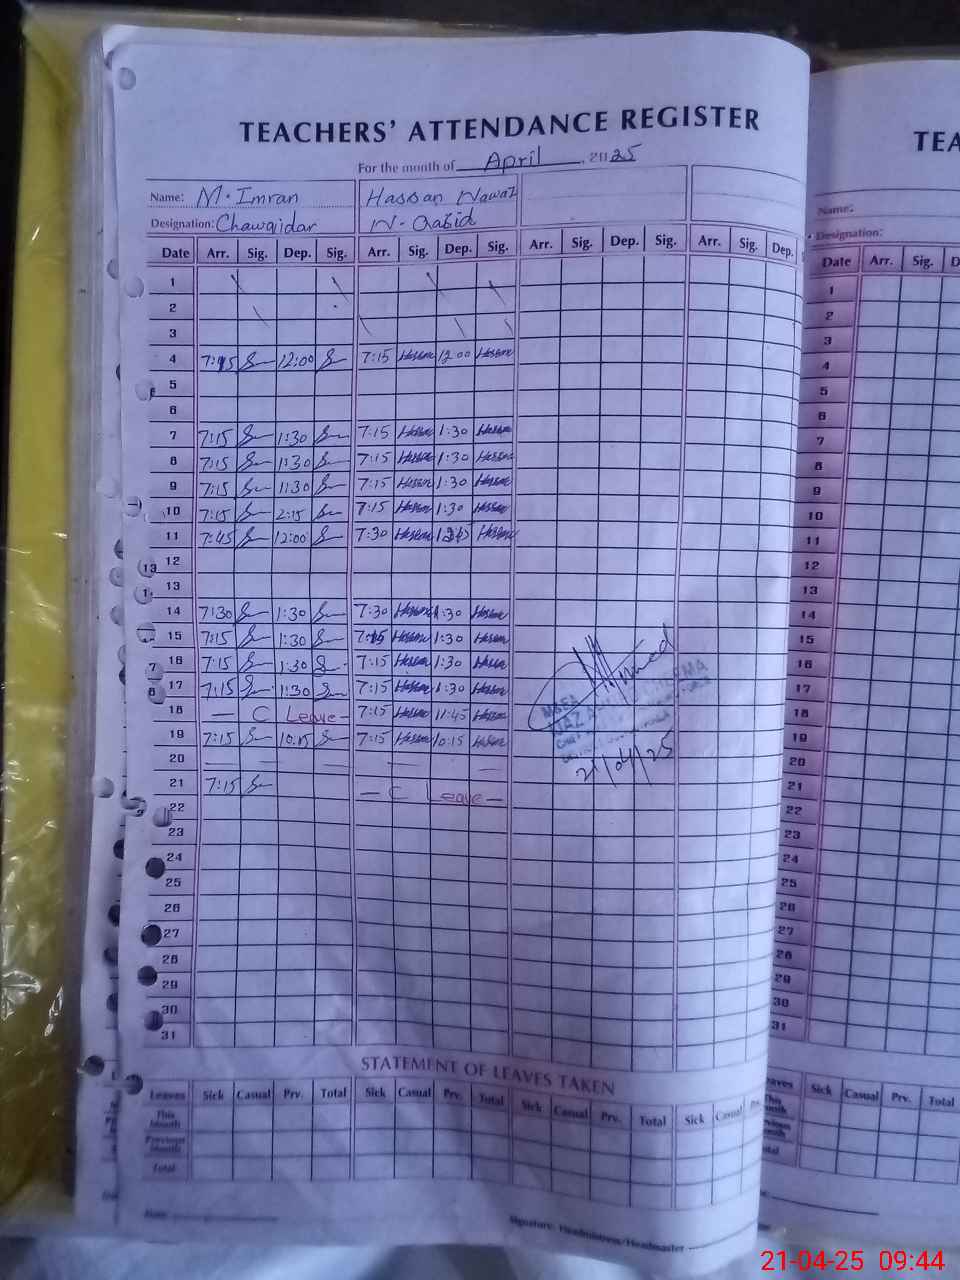 TEACHERS' ATTENDANCE REGISTER
For the month of April, 2025
Name: M. Imran Hassan Nawaz
Designation: Chawqidar N. Qasid
Date Arr. Sig. Dep. Sig. Arr. Sig. Dep. Sig. Arr. Sig. Dep. Sig. Arr. Sig. Dep.
1
2
3
4 7:15 12:00 7:15 Hassan 12:00 Hassan
5
6
7 7:15 1:30 7:15 Hassan 1:30 Hassan
8 7:15 1:30 7:15 Hassan 1:30 Hassan
9 7:15 1:30 7:15 Hassan 1:30 Hassan
10 7:15 2:15 7:15 Hassan 1:30 Hassan
11 7:45 12:00 7:30 Hassan Hassan
12
13
14 7:30 1:30 7:30 Hassan 1:30 Hassan
15 7:15 1:30 7:15 Hassan 1:30 Hassan
16 7:15 1:30 7:15 Hassan 1:30 Hassan
17 7:15 1:30 7:15 Hassan 1:30 Hassan
18 — C Leave — 7:15 Hassan 11:45 Hassan
19 7:15 10:15 7:15 Hassan 10:15 Hassan
20
21 7:15 — C Leave —
22
23
24
25
26
27
28
29
30
31
MSEA
21/04/25
STATEMENT OF LEAVES TAKEN
Leaves Sick Casual Prv. Total Sick Casual Prv. Total Sick Casual Prv. Total Sick Casual
This Month
Previous Month
Total
Date
Signature: Headmistress/Headmaster
TEA
Name:
Designation:
Date Arr. Sig. D
1
2
3
4
5
6
7
8
9
10
11
12
13
14
15
16
17
18
19
20
21
22
23
24
25
26
27
28
29
30
31
Sick Casual Prv. Total
21-04-25 09:44